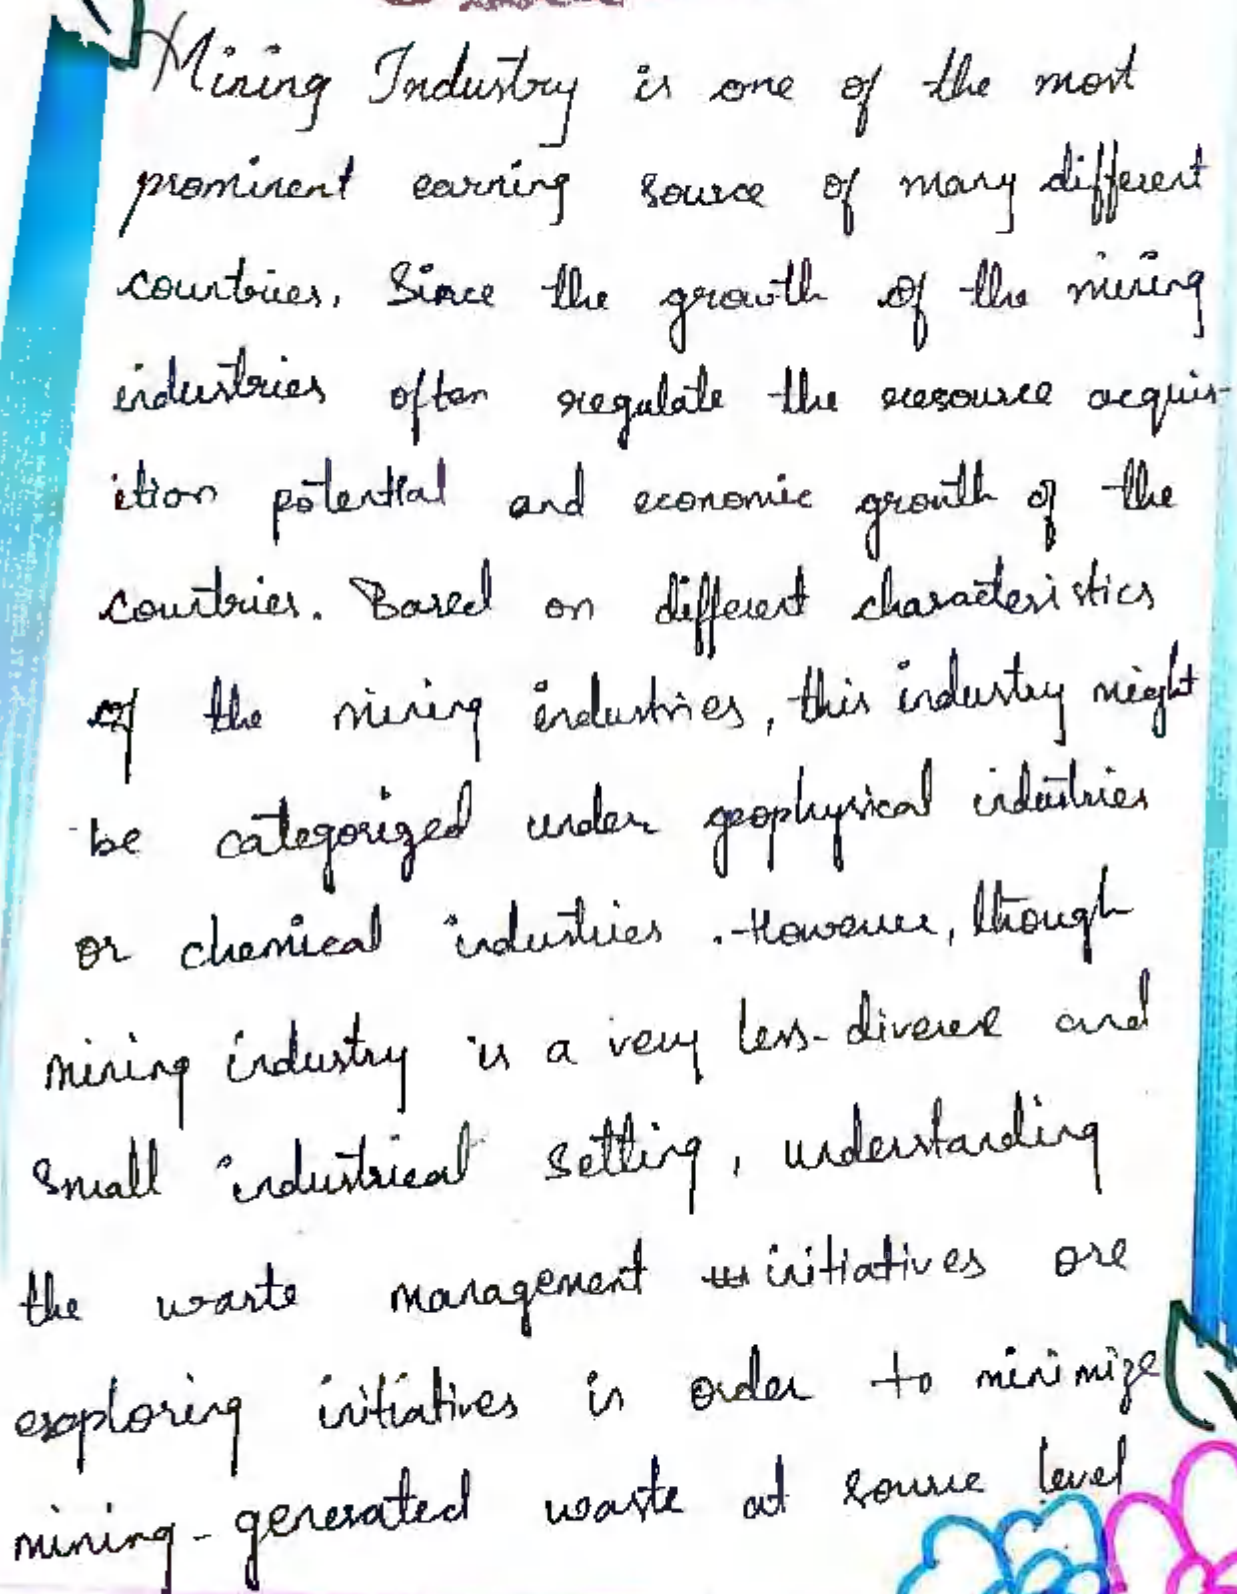 Mining Industry is one of the most
prominent earning source of many different
countries. Since the growth of the mining
industries often regulate the resource acquis-
ition potential and economic growth of the
countries. Based on different characteristics
of the mining industries, this industry might
be categorized under geophysical industries
or chemical industries. However, though
mining industry is a very less-diverse and
small industrical setting, understanding
the waste management initiatives ore
exploring initiatives in order to minimize
mining-generated waste at source level